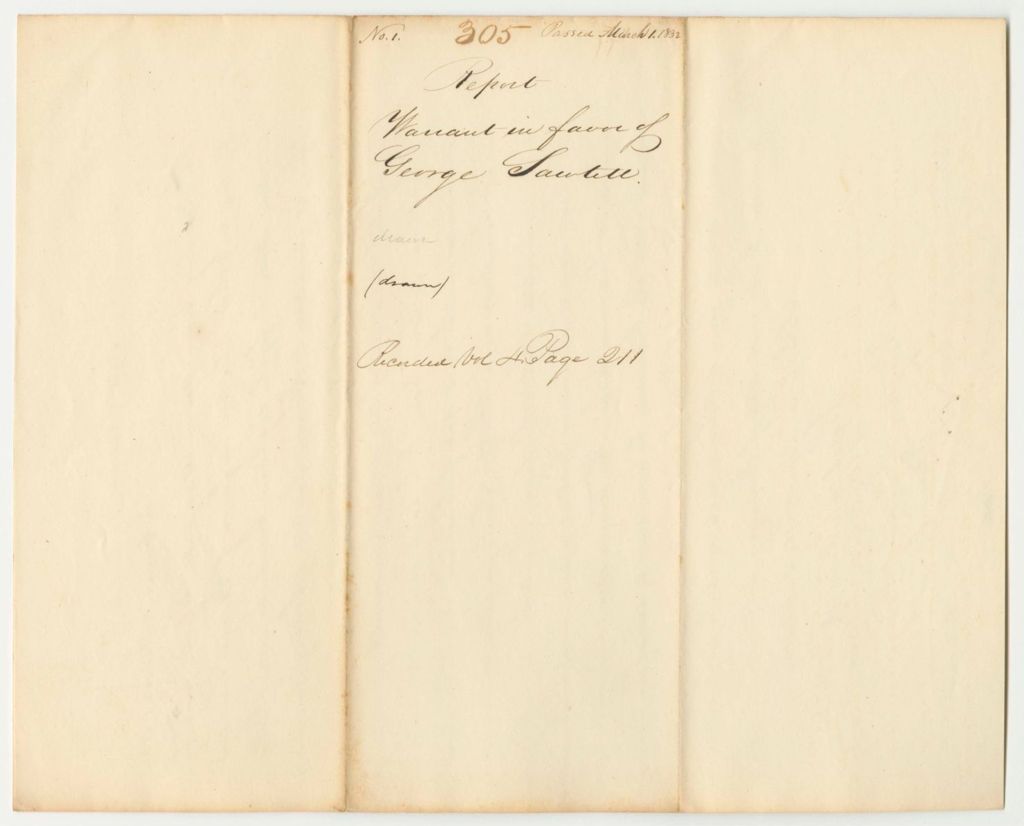 No. 1. 305 Passed March 1. 1832
Report
Warrant in favor of
George Sawtell.
drawn
(drawn)
Recorded Vol 4. Page 211